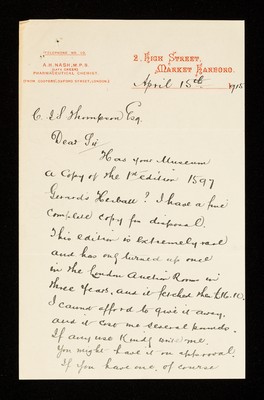 TELEPHONE No. 12.
A. H. NASH, M.P.S.
(LATE GREEN)
PHARMACEUTICAL CHEMIST.
2, HIGH STREET,
MARKET HARBORO.
April 15th 1915
C. J. S. Thompson Esq.
Dear Sir
Has your Museum
a Copy of the 1st edition 1597
Gerards Herball? I have a fine
complete copy for disposal.
This edition is extremely rare
and has only turned up once
in the London Auction Rooms in
three years, and it fetched then £16.10.
I cannot afford to give it away,
and it cost me several pounds.
If any use Kindly wire me.
You might have it on approval.
If you have one, of course